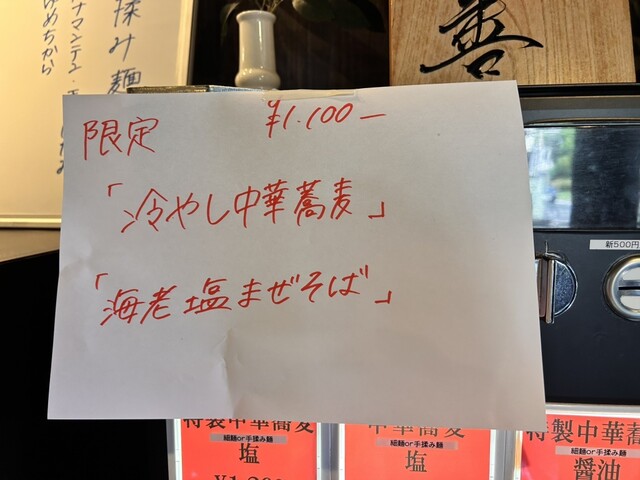 揉み麺
ゆめちから
善
限定 ¥1.100ー
「冷やし中華蕎麦」
「海老塩まぜそば」
新500円
特製中華蕎麦
細麺or手揉み麺
塩
中華蕎麦
細麺or手揉み麺
塩
特製中華蕎
細麺or手揉み麺
醤油